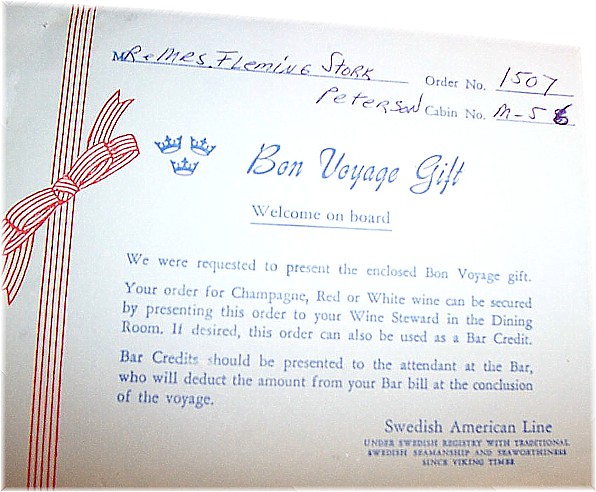 Mr & Mrs. Fleming Stork Order No. 1507
Peterson Cabin No. M-56
Bon Voyage Gift
Welcome on board
We were requested to present the enclosed Bon Voyage gift.
Your order for Champagne, Red or White wine can be secured
by presenting this order to your Wine Steward in the Dining
Room. If desired, this order can also be used as a Bar Credit.
Bar Credits should be presented to the attendant at the Bar,
who will deduct the amount from your Bar bill at the conclusion
of the voyage.
Swedish American Line
UNDER SWEDISH REGISTRY WITH TRADITIONAL
SWEDISH SEAMANSHIP AND SEAWORTHINESS
SINCE VIKING TIMES